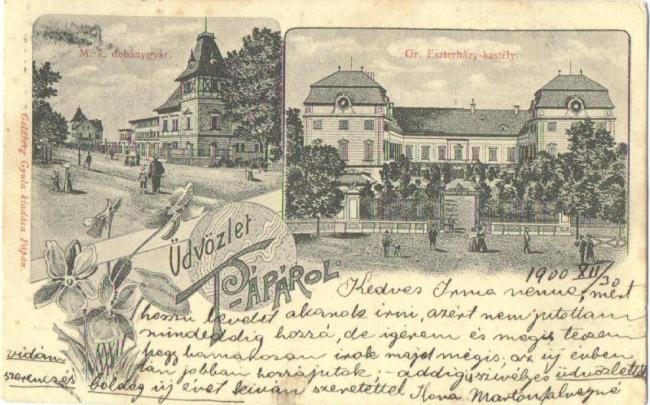 M. k. dohánygyár.
Gr. Eszterházy-kastély
Goldberg Gyula kiadása Pápán.
Üdvözlet
PÁPÁRÓL
1900 XII/30
Kedves Irma néni, mert
hosszú levelet akarok irni, azért nem jutottam
mindeddig hozzá, de igérem és meg is teszem
hogy hamarosan irok majd mégis, az új évben
tán jobban hozzájutok; – addig szivélyes üdvözlettel
vidám
szerencsés boldog új évet kiván szeretettel Ilona